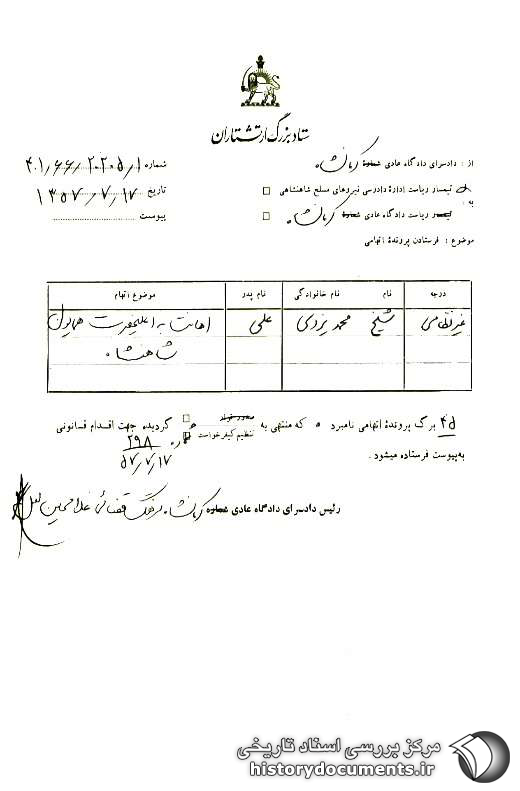 ستاد بزرگ ارتشتاران
از : دادسرای دادگاه عادی شماره کرمانشاه
شماره ۴۰۱/۶۶/۲۰۲۰۵/۱
تاریخ ۱۳۵۷/۷/۱۷
پیوست
به : تیمسار ریاست ادارهٔ دادرسی نیروهای مسلح شاهنشاهی
تیمسار ریاست دادگاه عادی شماره کرمانشاه
موضوع : فرستادن پروندهٔ اتهامی
درجه نام نام خانوادگی نام پدر موضوع اتهام
غیرنظامی شیخ محمد یزدی علی اهانت به اعلیحضرت همایون
شاهنشاه
۴۵ برگ پروندهٔ اتهامی نامبرده که منتهی به
تنظیم کیفرخواست
۲۹۸
۵۷/۷/۱۷
گردیده جهت اقدام قانونی
به‌پیوست فرستاده میشود .
رئیس دادسرای دادگاه عادی شماره کرمانشاه سرهنگ قضائی غلامحسین
مرکز بررسی اسناد تاریخی
historydocuments.ir